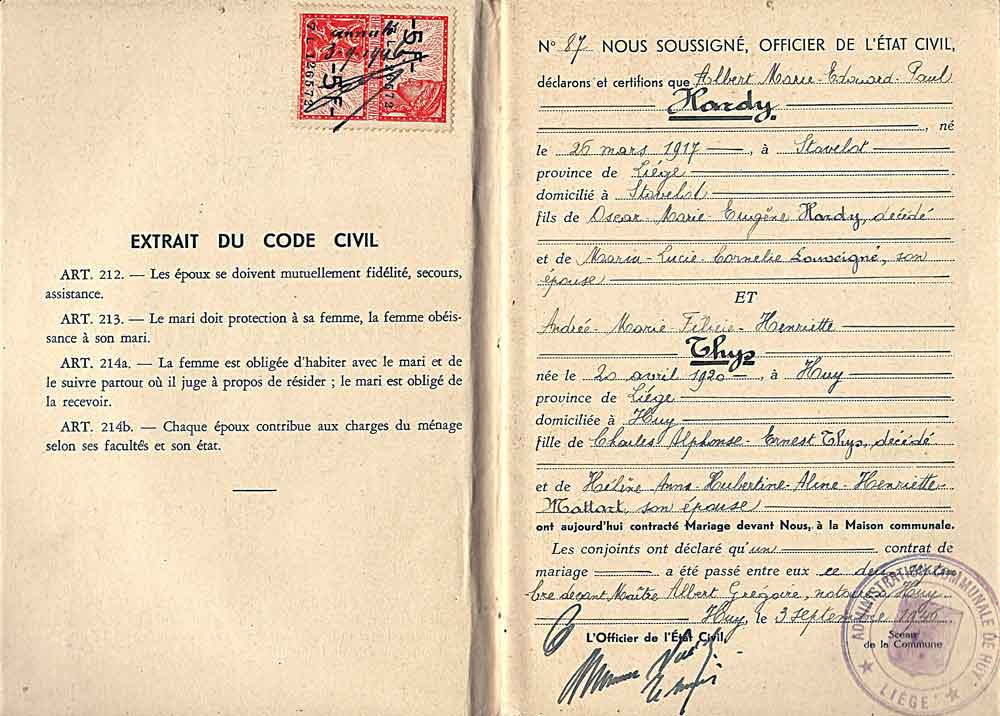 -5 F-
-5 F-
EXTRAIT DU CODE CIVIL
ART. 212. — Les époux se doivent mutuellement fidélité, secours,
assistance.
ART. 213. — Le mari doit protection à sa femme, la femme obéis-
sance à son mari.
ART. 214a. — La femme est obligée d'habiter avec le mari et de
le suivre partout où il juge à propos de résider ; le mari est obligé de
la recevoir.
ART. 214b. — Chaque époux contribue aux charges du ménage
selon ses facultés et son état.
N° 87 NOUS SOUSSIGNÉ, OFFICIER DE L'ÉTAT CIVIL,
déclarons et certifions que Albert Marie-Edouard-Paul
Hardy
, né
le 26 mars 1917 —, à Stavelot
province de Liége
domicilié à Stavelot
fils de Oscar-Marie-Eugène Hardy, décédé
et de Maria-Lucie-Cornelie Louveigné, son
épouse
ET
Andrée-Marie-Félicie-Henriette
Thys
née le 20 avril 1920 —, à Huy
province de Liége
domiciliée à Huy
fille de Charles Alphonse-Ernest Thys, décédé
et de Hélène Anna-Hubertine-Aline-Henriette-
Mottart, son épouse
ont aujourd'hui contracté Mariage devant Nous, à la Maison communale.
Les conjoints ont déclaré qu'un contrat de
mariage a été passé entre eux ce deux
bre devant Maître Albert Grégoire, notaire à Huy
Huy, le 3 septembre 1940
L'Officier de l'État Civil,
Sceau
de la Commune
ADMINISTRATION COMMUNALE DE HUY
LIÉGE